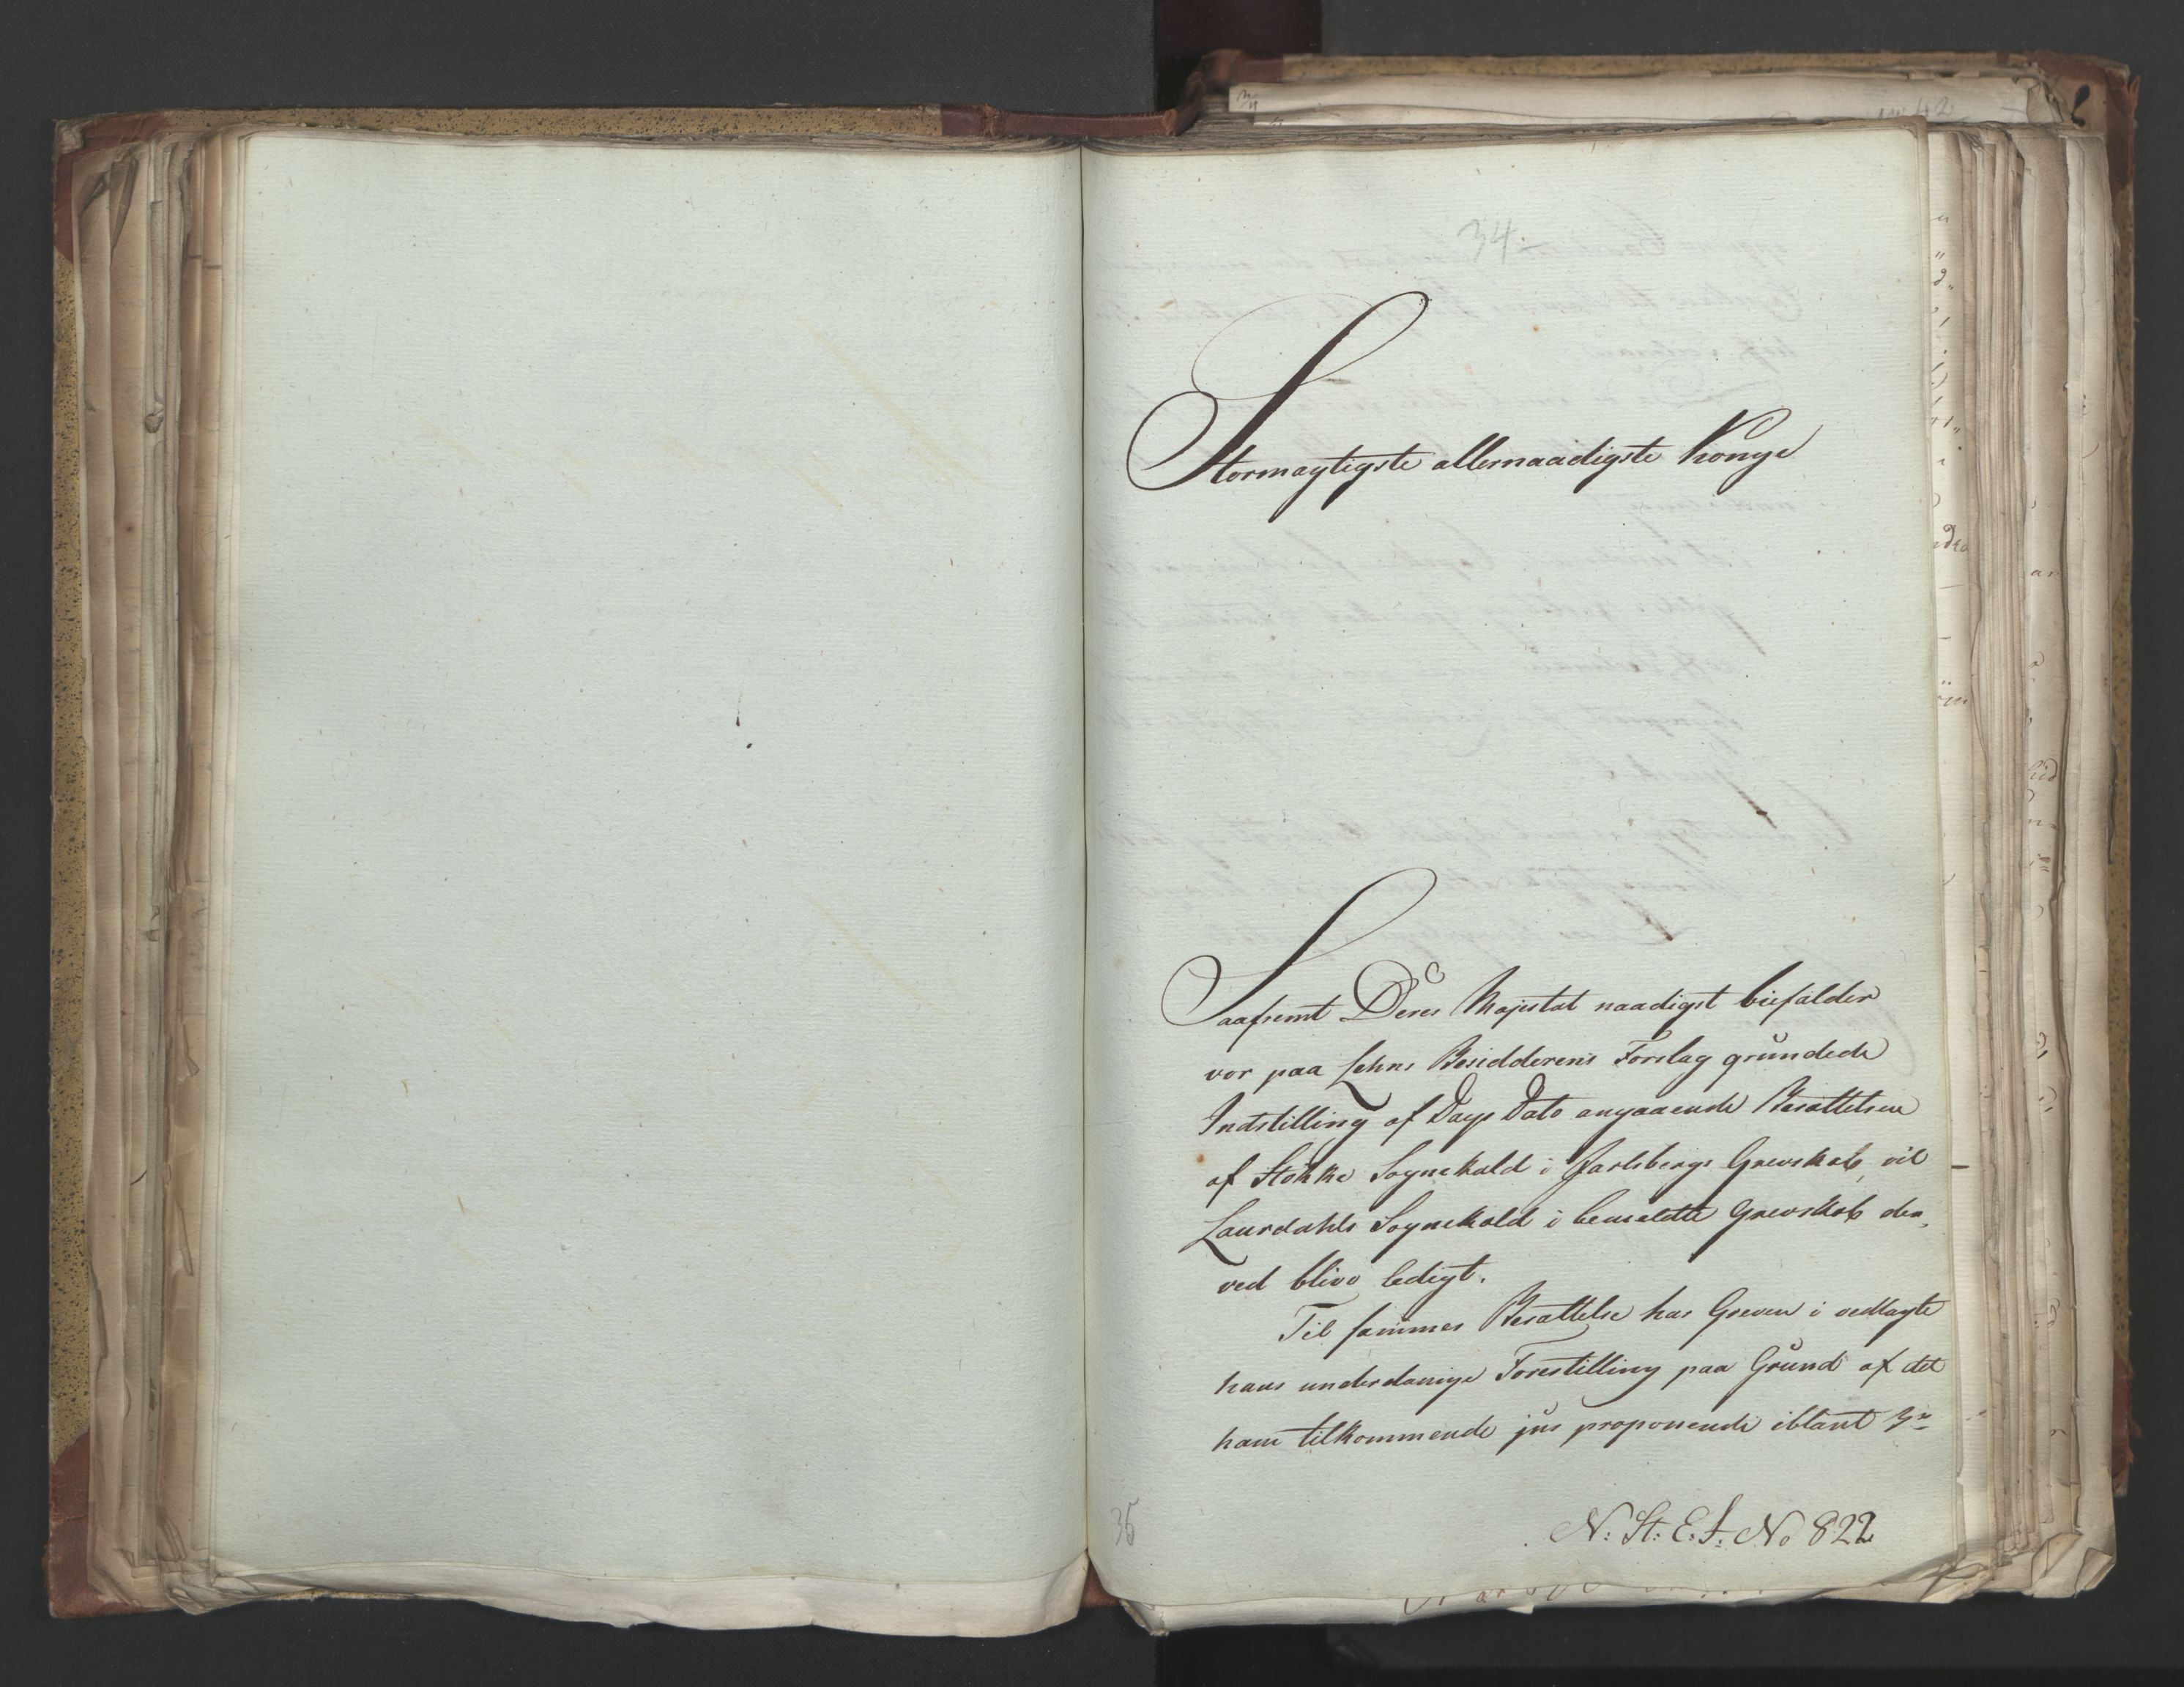 34.
Stormægtigste allernaadigste Konge
Saafremt Deres Majestæt naadigst biefalder
vor paa Lehns Besidderens Forslag grundede
Indstilling af Dags Dato angaaende Besættelsen
af Stokke Sognekald i Jarlsbergs Grevskab, vil
Laurdahls Sognekald i bemeldte Grevskab der,
ved blive ledigt.
Til sammes Besættelse har Greven i vedlagte
hans underdanige Forestilling paa Grund af det
ham tilkommende jus proponendi iblant 3de
N: St: E. I: No 822
35